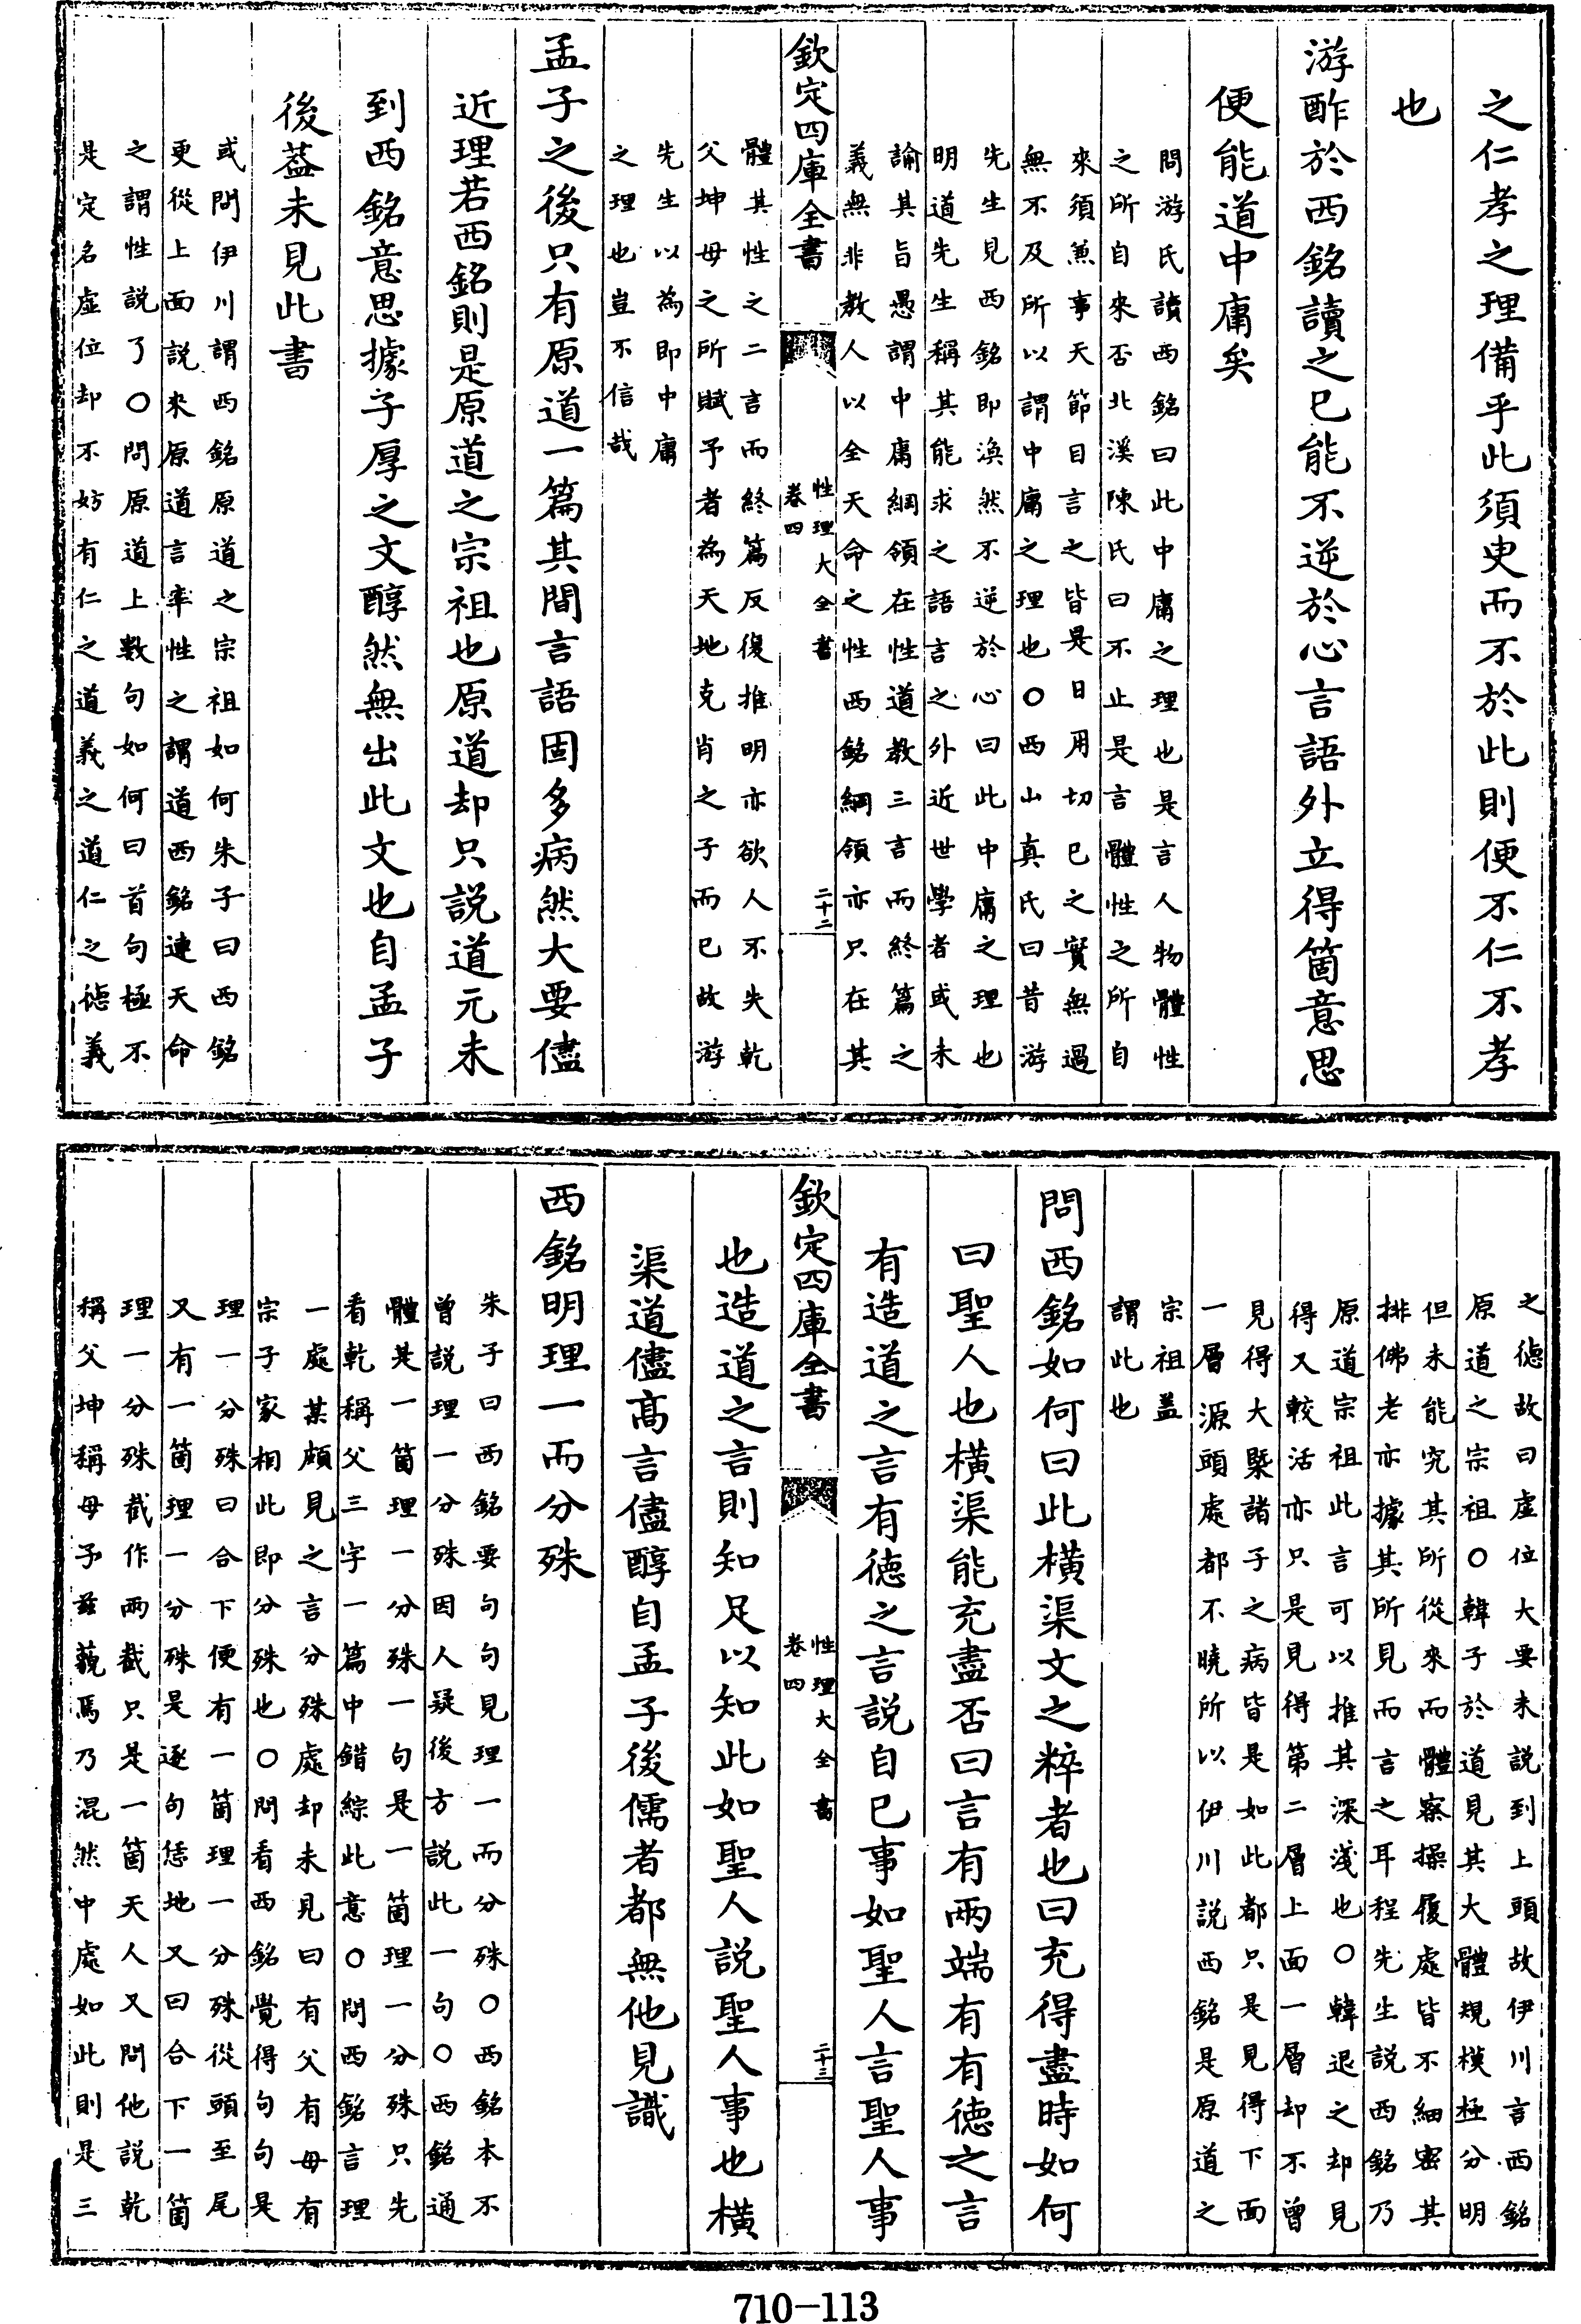 之仁孝之理備乎此須臾而不於此則便不仁不孝
也
游酢於西銘讀之已能不逆於心言語外立得箇意思
便能道中庸矣
問游氏讀西銘曰此中庸之理也是言人物體性
之所自來否北溪陳氏曰不止是言體性之所自
來須兼事天節目言之皆是日用切已之實無過
無不及所以謂中庸之理也○西山真氏曰昔游
先生見西銘即渙然不逆於心曰此中庸之理也
明道先生稱其能求之語言之外近世學者或未
諭其旨愚謂中庸綱領在性道教三言而終篇之
義無非教人以全天命之性西銘綱領亦只在其
欽定四庫全書
性理大全書
卷四
二十二
體其性之二言而終篇反復推明亦欲人不失乾
父坤母之所賦予者為天地克肖之子而已故游
先生以為即中庸
之理也豈不信哉
孟子之後只有原道一篇其間言語固多病然大要儘
近理若西銘則是原道之宗祖也原道却只說道元未
到西銘意思據子厚之文醇然無出此文也自孟子
後葢未見此書
或問伊川謂西銘原道之宗祖如何朱子曰西銘
更從上面說來原道言率性之謂道西銘連天命
之謂性說了○問原道上數句如何曰首句極不
是定名虛位却不妨有仁之道義之道仁之徳義
之徳故曰虛位大要未說到上頭故伊川言西銘
原道之宗祖○韓子於道見其大體規模極分明
但未能究其所從來而體察操履處皆不細密其
排佛老亦據其所見而言之耳程先生說西銘乃
原道宗祖此言可以推其深淺也○韓退之却見
得又較活亦只是見得第二層上面一層却不曾
見得大槩諸子之病皆是如此都只是見得下面
一層源頭處都不曉所以伊川說西銘是原道之
宗祖蓋
謂此也
問西銘如何曰此橫渠文之粹者也曰充得盡時如何
曰聖人也橫渠能充盡否曰言有兩端有有徳之言
有造道之言有徳之言說自已事如聖人言聖人事
欽定四庫全書
性理大全書
卷四
二十三
也造道之言則知足以知此如聖人說聖人事也橫
渠道儘髙言儘醇自孟子後儒者都無他見識
西銘明理一而分殊
朱子曰西銘要句句見理一而分殊○西銘本不
曾說理一分殊因人疑後方說此一句○西銘通
體是一箇理一分殊一句是一箇理一分殊只先
看乾稱父三字一篇中錯綜此意○問西銘言理
一處某頗見之言分殊處却未見曰有父有母有
宗子家相此即分殊也○問看西銘覺得句句是
理一分殊曰合下便有一箇理一分殊從頭至尾
又有一箇理一分殊是逐句恁地又曰合下一箇
理一分殊截作兩截只是一箇天人又問他說乾
稱父坤稱母予玆藐焉乃混然中處如此則是三
710—113